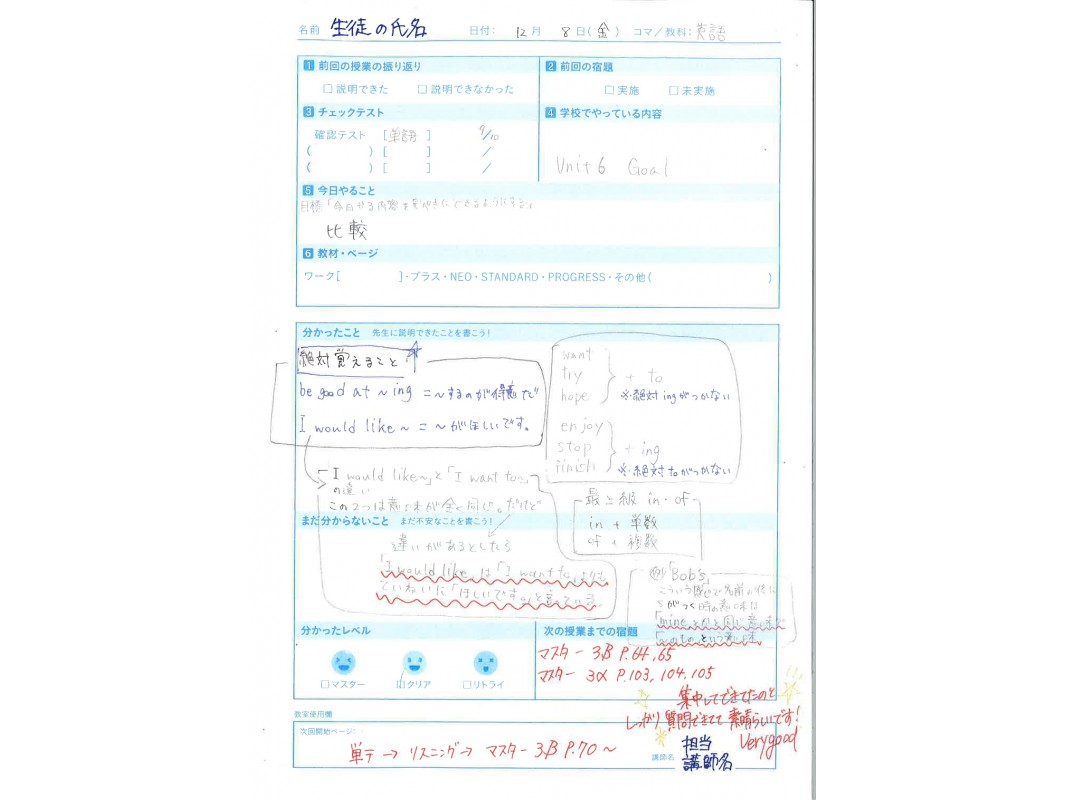 名前 生徒の氏名 日付: 12月 8日(金) コマ/教科: 英語
1 前回の授業の振り返り
□ 説明できた □ 説明できなかった
2 前回の宿題
□ 実施 □ 未実施
3 チェックテスト
確認テスト [単語] 9/10
( ) [ ] /
( ) [ ] /
4 学校でやっている内容
Unit 6 Goal
5 今日やること
目標「今日やる内容を完ぺきにできるようにする」
比較
6 教材・ページ
ワーク[ ]・プラス・NEO・STANDARD・PROGRESS・その他( )
分かったこと 先生に説明できたことを書こう!
絶対覚えること
be good at ~ ing = ~するのが得意だ
I would like ~ = ~がほしいです。
want
try
hope
+ to
※絶対ingがつかない
enjoy
stop
finish
+ ing
※絶対toがつかない
「I would like~」と「I want to~」
の違い
この2つは意味が全く同じ。だけど
最上級 in・of
in + 単数
of + 複数
まだ分からないこと まだ不安なことを書こう!
違いがあるとしたら
「I would like」は「I want to」よりも
ていねいに「ほしいです。」と言っている。
例「Bob's」
こういう感じで名前の後に
sがつく時の意味は
「mine」とかと同じ意味で
「~のもの」という意味
分かったレベル
□マスター □クリア □リトライ
次の授業までの宿題
マスター 3β P.64,65
マスター 3α P.103, 104, 105
集中してできてたのと
しっかり質問できてて素晴らしいです!
Very good
教室使用欄
次回開始ページ:
単テ → リスニング → マスター 3β P.70 ~
講師名 担当
講師名